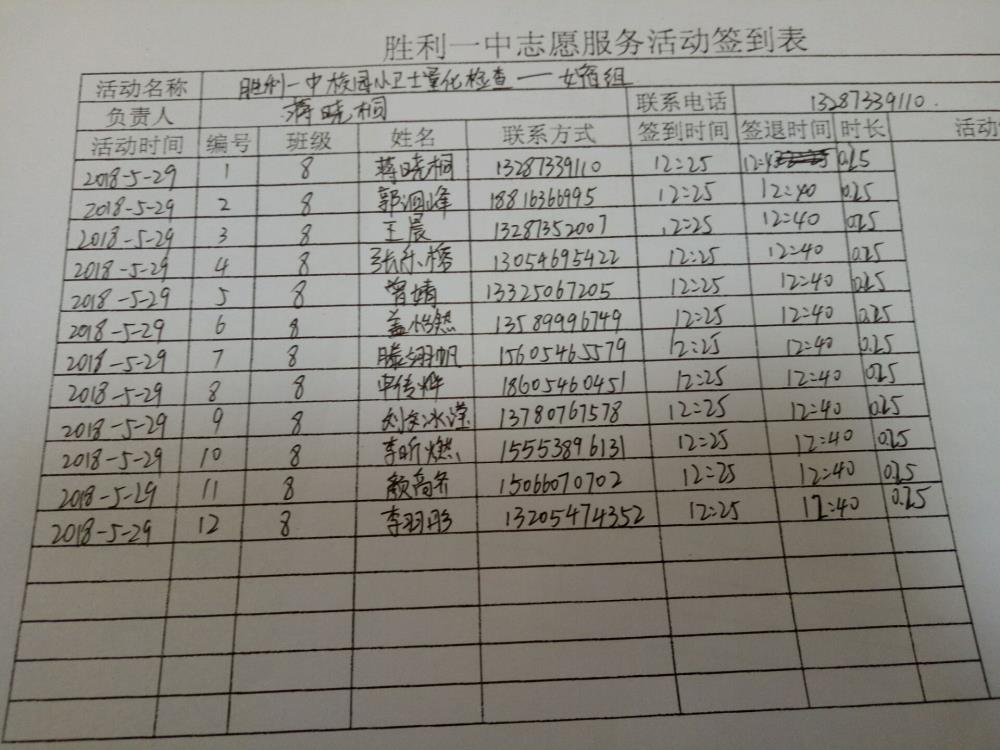 胜利一中志愿服务活动签到表
活动名称 胜利一中校园小卫士量化检查——女宿组
负责人 蒋晓桐 联系电话 13287339110.
活动时间 编号 班级 姓名 联系方式 签到时间 签退时间 时长 活动
2018-5-29 1 8 蒋晓桐 13287339110 12:25 12:4 0.25
2018-5-29 2 8 郭 峰 18816366995 12:25 12:40 0.25
2018-5-29 3 8 王晨 13287352007 12:25 12:40 0.25
2018-5-29 4 8 张乐榕 13054695422 12:25 12:40 0.25
2018-5-29 5 8 曾婧 13325067205 12:25 12:40 0.25
2018-5-29 6 8 盖 然 13589996749 12:25 12:40 0.25
2018-5-29 7 8 滕翊帆 15605465579 12:25 12:40 0.25
2018-5-29 8 8 申传烨 18605460451 12:25 12:40 0.25
2018-5-29 9 8 刘 冰滢 13780767578 12:25 12:40 0.25
2018-5-29 10 8 李昕燃 15553896131 12:25 12:40 0.25
2018-5-29 11 8 颜高齐 15066070702 12:25 12:40 0.25
2018-5-29 12 8 李羽彤 13205474352 12:25 12:40 0.25